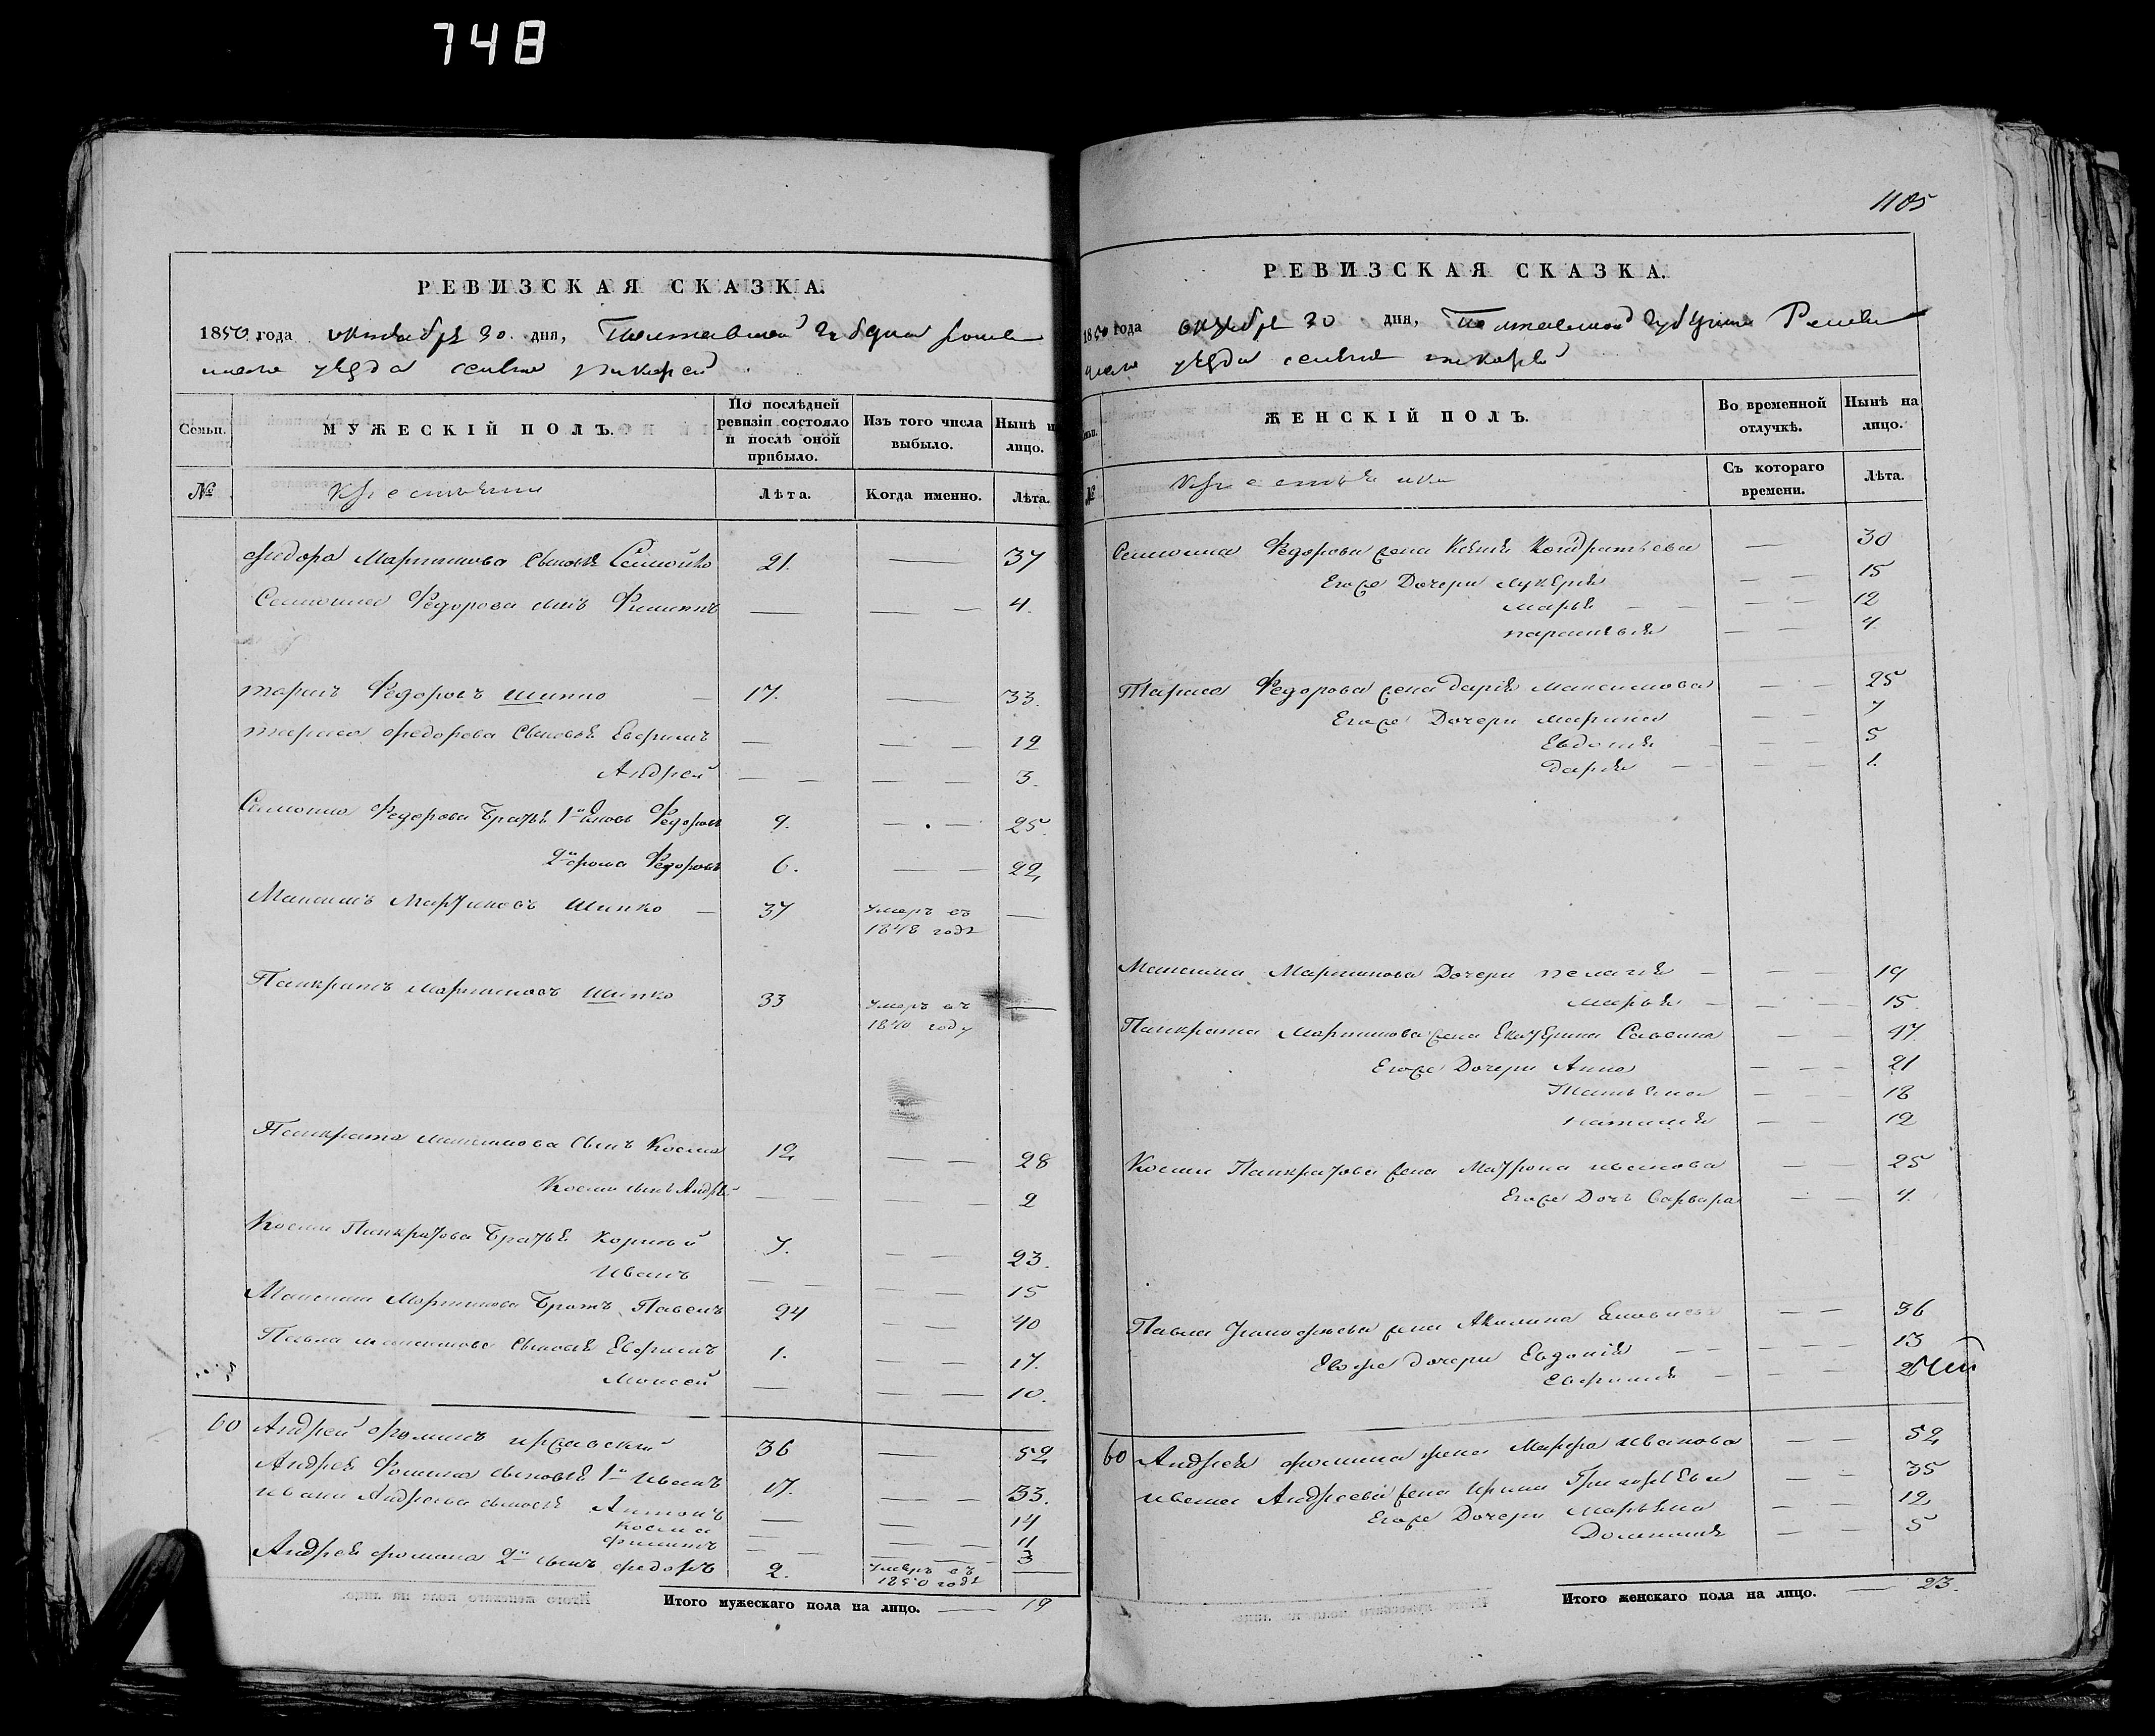 748
1105
РЕВИЗСКАЯ СКАЗКА.
1850 года октября 30. дня, Полтавской губерни Роме
уезда селение
Семьи.
МУЖЕСКІЙ ПОЛЪ.
По послѣдней ревизіи состояло и послѣ оной прибыло.
Изъ того числа выбыло.
Нынѣ на лицо.
№
Крестьяни
Лѣта.
Когда именно.
Лѣта.
Федора Мартинова Сыновя Семойло 21. — 37
Федорова сынъ Филипъ — — — 4.
Тарасъ Федоровъ Шипко — 17. — 33.
Тараса Федорова Сыновья Ефримъ — — — 12
Андрей — — — — 3.
Федорова Братья 1й Яковъ Федоровъ 9. — — 25.
2й Фома Федоровъ 6. — — 22,
Максимъ Мартиновъ Шипко — 37 умеръ въ 1848 годе —
Панкратъ Мартиновъ Шипко 33 умеръ въ 1840 году —
Панкрата Максимова Сынъ Косма 12, — — 28
Космы сынъ Андрей — — — — 2
Космы Панкратова Братья Корней 7. — — 23.
Иванъ — — — — 15
Максима Мартинова Братъ Павелъ 24 — — 40
Павла Максимова Сыновья Ефримъ 1. — — 17.
Моисей — — — 10.
60 Андрей Фоминъ 36 — 52,
Андрея Фомина сыновья 1й Иванъ 17. — — 33.
Ивана Андреева сыновья Антонъ — — 14
Косма — — 11
Филипъ — — — 3
Андрея Фомина 2й сынъ Федоръ 2. умеръ въ 1850 годе —
Итого мужескаго пола на лицо. — 19
РЕВИЗСКАЯ СКАЗКА.
1850 года октября 30 дня, Полтавской губерни Роме
уезда селение
Семьи.
ЖЕНСКІЙ ПОЛЪ.
Во временной отлучкѣ.
Нынѣ на лицо.
№
Съ котораго времени.
Лѣта.
Федорова жена Ксенія Кондратьева — 30
Егоже Дочери Лукерія — — 15
Марья — — — — 12
Парасковія — — 4.
Тараса Федорова жена Дарія Максимова — — 25
Егоже Дочери Марина — — 7
Евдокия — — — 5
Дария — — — — 1.
Максима Мартинова Дочери Пелагія — — — 19
Марья — — — 15.
Панкрата Мартинова жена Екатерина Саввина — — 47.
Егоже Дочери Анна — — — 21
Татьяна — — — 18
Наталия — — 12
Космы Панкратова жена Матрона Иванова — 25
Егоже Дочь Варвара — — 4.
Павла жена Акилина — — 36
Егоже дочери Евдокія — — — — — 13
Ефимия — — — —
60 Андрея Фомина жена Марфа Иванова — — 52,
Ивана Андреева жена Ирина Григорьева — — 35
Егоже Дочери Марьяна — — 12
Домникия — — 5
Итого женскаго пола на лицо. — 23.